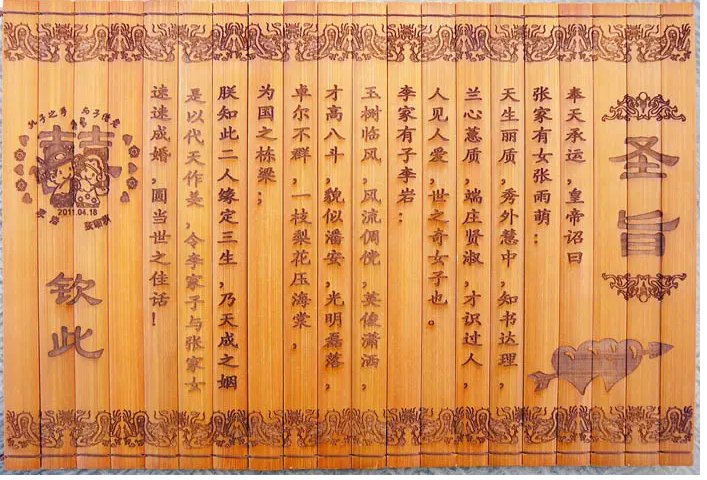 圣旨
奉天承运,皇帝诏曰
张家有女张雨萌:
天生丽质,秀外慧中,知书达理,
兰心蕙质,端庄贤淑,才识过人,
人见人爱,世之奇女子也。
李家有子李岩:
玉树临风,风流倜傥,英俊潇洒,
才高八斗,貌似潘安,光明磊落,
卓尔不群,一枝梨花压海棠,
为国之栋梁;
朕知此二人缘定三生,乃天成之姻
是以代天作美,令李家子与张家女
速速成婚,圆当世之佳话!
囍
2011.04.18
钦此